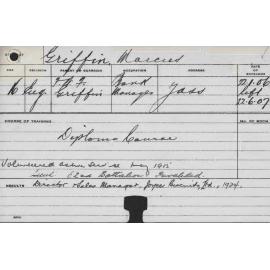 Griffin, Marcus
AGE RELIGION PARENT OR GUARDIAN OCCUPATION ADDRESS DATE OF ENTRANCE
16 Eng. Griffin Bank Manager Yass 22.1.06
left
22.6.07
COURSE OF TRAINING
Diploma Course
Volunteered active Service May 1915
Lieut 62nd Battalion Invalided
RESULTS Director & Sales Manager, Joyce Biscuits, Ltd., 1924.